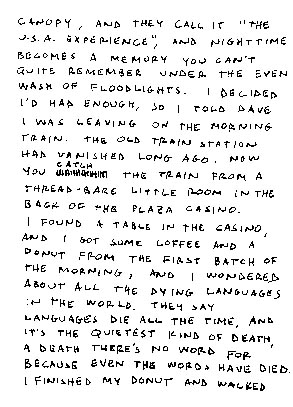 CANOPY, AND THEY CALL IT "THE
U.S.A. EXPERIENCE", AND NIGHTTIME
BECOMES A MEMORY YOU CAN'T
QUITE REMEMBER UNDER THE EVEN
WASH OF FLOODLIGHTS. I DECIDED
I'D HAD ENOUGH, SO I TOLD DAVE
I WAS LEAVING ON THE MORNING
TRAIN. THE OLD TRAIN STATION
HAD VANISHED LONG AGO. NOW
YOU CATCH THE TRAIN FROM A
THREAD-BARE LITTLE ROOM IN THE
BACK OF THE PLAZA CASINO.
I FOUND A TABLE IN THE CASINO,
AND I GOT SOME COFFEE AND A
DONUT FROM THE FIRST BATCH OF
THE MORNING, AND I WONDERED
ABOUT ALL THE DYING LANGUAGES
IN THE WORLD. THEY SAY
LANGUAGES DIE ALL THE TIME, AND
IT'S THE QUIETEST KIND OF DEATH,
A DEATH THERE'S NO WORD FOR
BECAUSE EVEN THE WORDS HAVE DIED.
I FINISHED MY DONUT AND WALKED